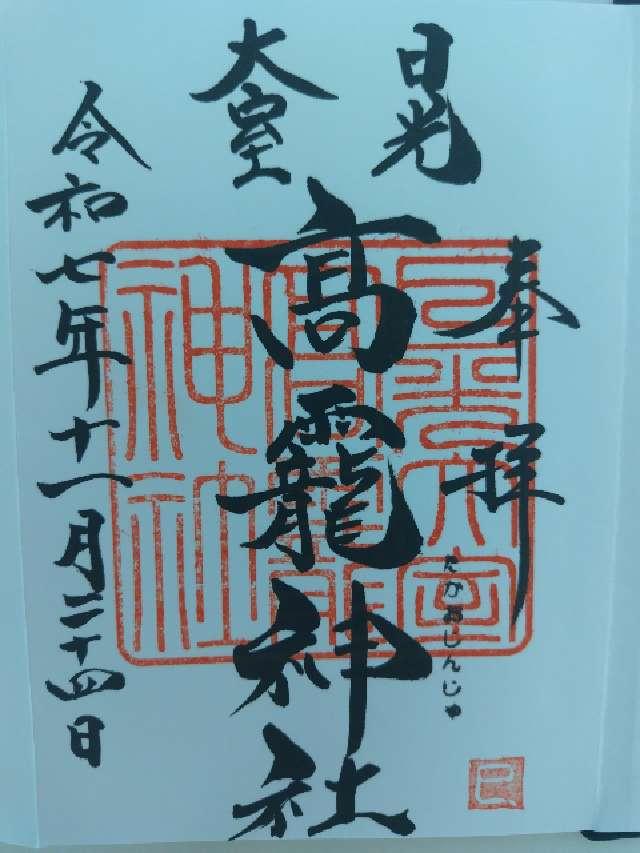 日光
奉拝
大室
高龗神社
たかおじんじゃ
令和七年十一月二十四日
日光大室
高龗
神社
巳